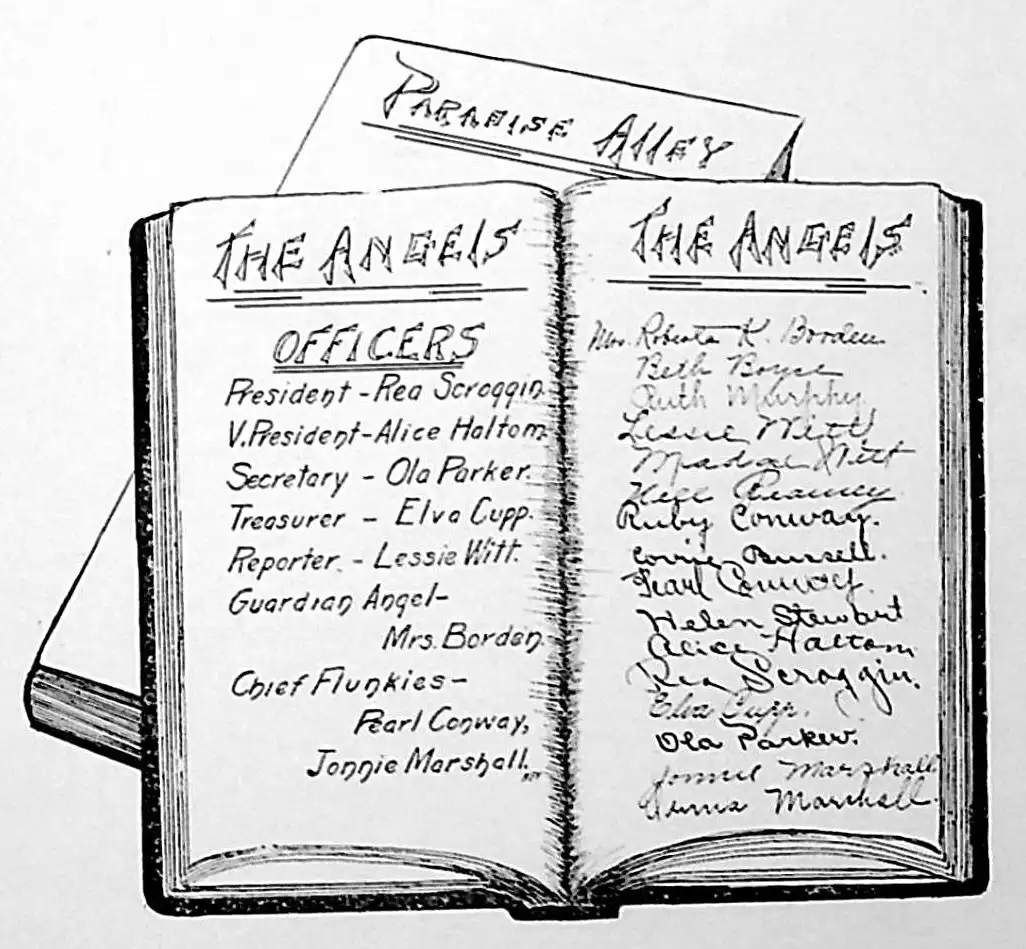 PARADISE ALLEY
THE ANGELS
OFFICERS
President - Rea Scroggin.
V. President - Alice Haltom.
Secretary - Ola Parker.
Treasurer - Elva Cupp.
Reporter - Lessie Witt.
Guardian Angel -
Mrs. Borden.
Chief Flunkies -
Pearl Conway,
Jonnie Marshall.
THE ANGELS
Mrs. Roberta K. Borden
Beth Boyce
Ruth Murphy.
Lessie Witt
Witt
Ruby Conway.
Corrie Bussell.
Pearl Conway
Helen Stewart
Alice Haltom
Rea Scroggin.
Elva Cupp.
Ola Parker.
Jonnie Marshall
Marshall.